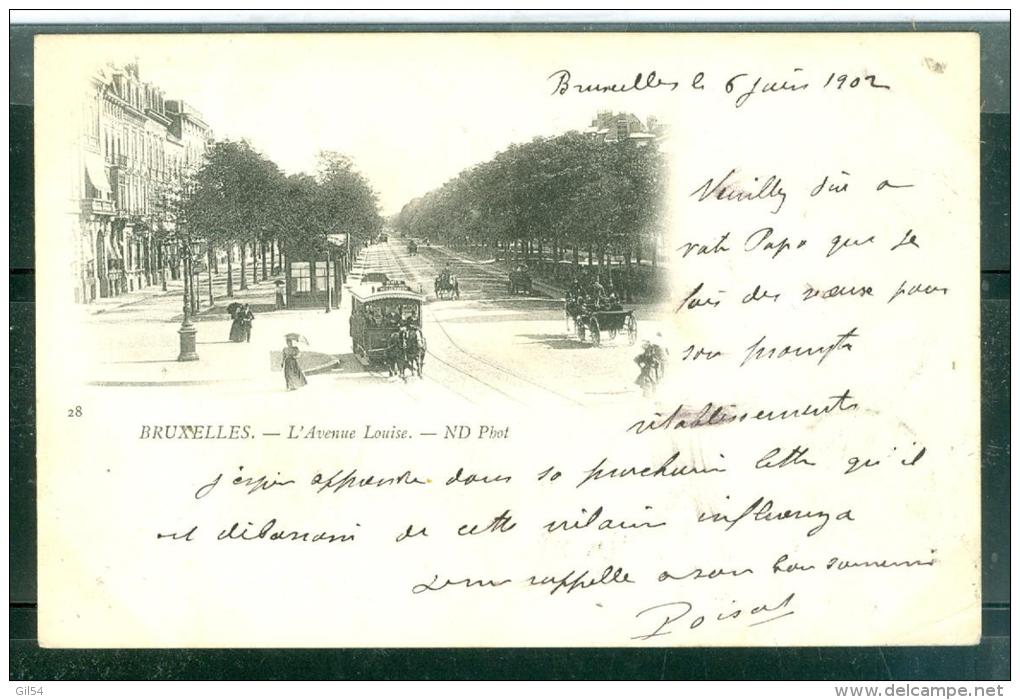 Bruxelles le 6 juin 1902
Veuilly dire a
votre Papa que je
fais des vœux pour
son prompte
rétablissements
28
BRUXELLES. — L'Avenue Louise. — ND Phot
j'espère apprendre dans sa prochain lettre qu'il
est débarassé de cette vilaine influenza
rappelle a son bon souvenir
Poisat
Gil54
www.delcampe.net